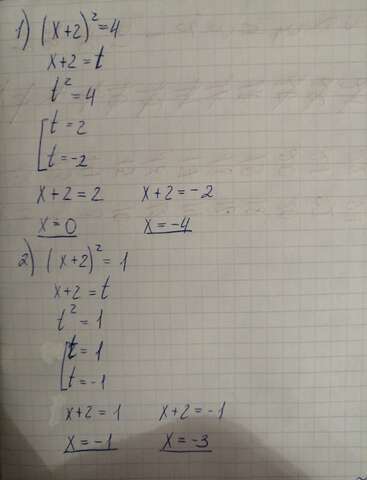 1) (x+2)² = 4
x+2 = t
t² = 4
[t = 2
t = -2
x+2 = 2 x+2 = -2
x = 0 x = -4
2) (x+2)² = 1
x+2 = t
t² = 1
[t = 1
t = -1
x+2 = 1 x+2 = -1
x = -1 x = -3